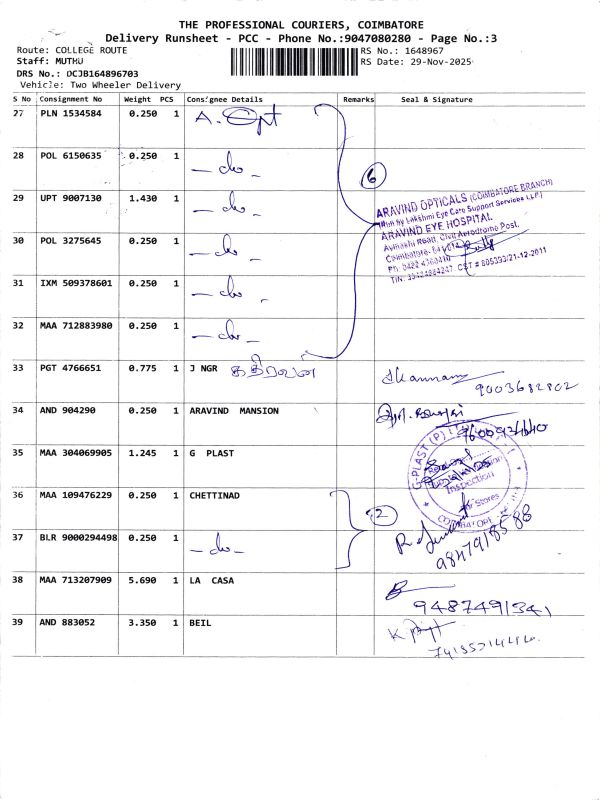 THE PROFESSIONAL COURIERS, COIMBATORE
Delivery Runsheet - PCC - Phone No.:9047080280 - Page No.:3
Route: COLLEGE ROUTE RS No.: 1648967
Staff: MUTHU RS Date: 29-Nov-2025
DRS No.: DCJB164896703
Vehicle: Two Wheeler Delivery
S No Consignment No Weight PCS Consignee Details Remarks Seal & Signature
27 PLN 1534584 0.250 1 A. Opt
28 POL 6150635 0.250 1 - do -
6
29 UPT 9007130 1.430 1 - do -
ARAVIND OPTICALS (COIMBATORE BRANCH)
(Run by Lakshmi Eye Care Support Services LLP)
ARAVIND EYE HOSPITAL
Avinashi Road, Civil Aerodrome Post,
Coimbatore-
Ph: 0422 4360410
TIN: CST # 21-12-2011
30 POL 3275645 0.250 1 - do -
31 IXM 509378601 0.250 1 - do -
32 MAA 712883980 0.250 1 - do -
33 PGT 4766651 0.775 1 J NGR கதிரவன்
9003682802
34 AND 904290 0.250 1 ARAVIND MANSION
35 MAA 304069905 1.245 1 G PLAST
G-PLAST (P)
Inspection
Stores
36 MAA 109476229 0.250 1 CHETTINAD
2
37 BLR 9000294498 0.250 1 - do -
38 MAA 713207909 5.690 1 LA CASA
9487491341
39 AND 883052 3.350 1 BEIL